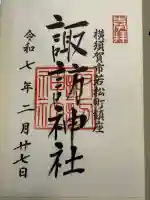 横須賀市若松町鎮座
諏訪神社
令和七年二月廿七日